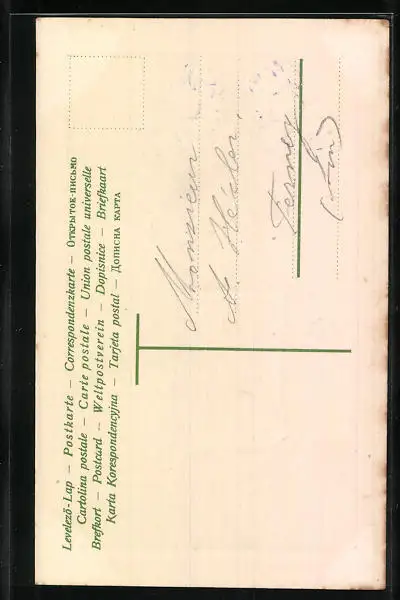 Levelező-Lap — Postkarte — Correspondenzkarte — Открыток-письмо
Cartolina postale — Carte postale — Union postale universelle
Brefkort — Postcard — Weltpostverein — Dopisnice — Briefkaart
Karta Korespondencyjna — Tarjeta postal — Дописна карта
Monsieur
Ferney
(Ain)